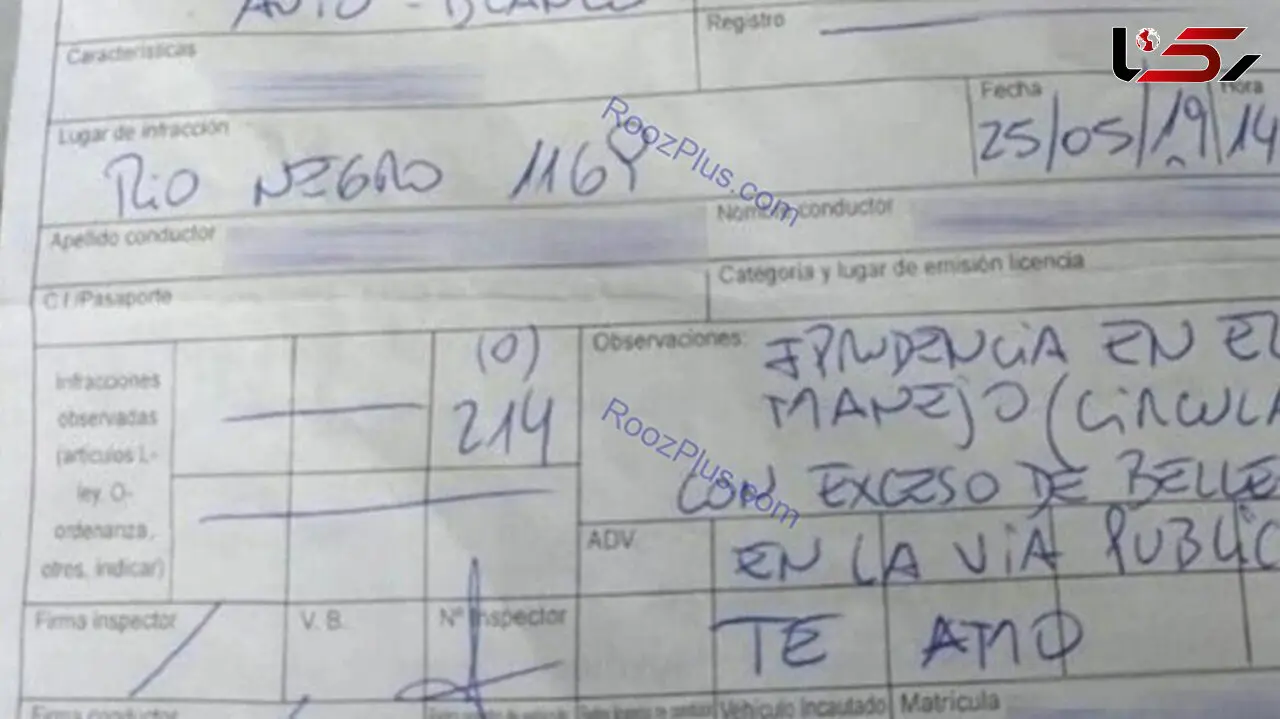 AUTO - BLANCO
Registro
Características
Fecha
Hora
Lugar de infracción
25/05/19 14
RIO NEGRO 1164
RoozPlus.com
Apellido conductor
Nombre conductor
C I /Pasaporte
Categoria y lugar de emisión licencia
Infracciones
observadas
(artículos L-
ley, O-
ordenanza,
otros, indicar)
(0)
214
Observaciones:
IPRUDENCIA EN EL
MANEJO (CIRCULA
RoozPlus.com
CON EXCESO DE BELLE
ADV.
EN LA VIA PUBLIC
TE AMO
Firma inspector
V. B.
Nº Inspector
Firma conductor
Vehículo Incautado
Matrícula